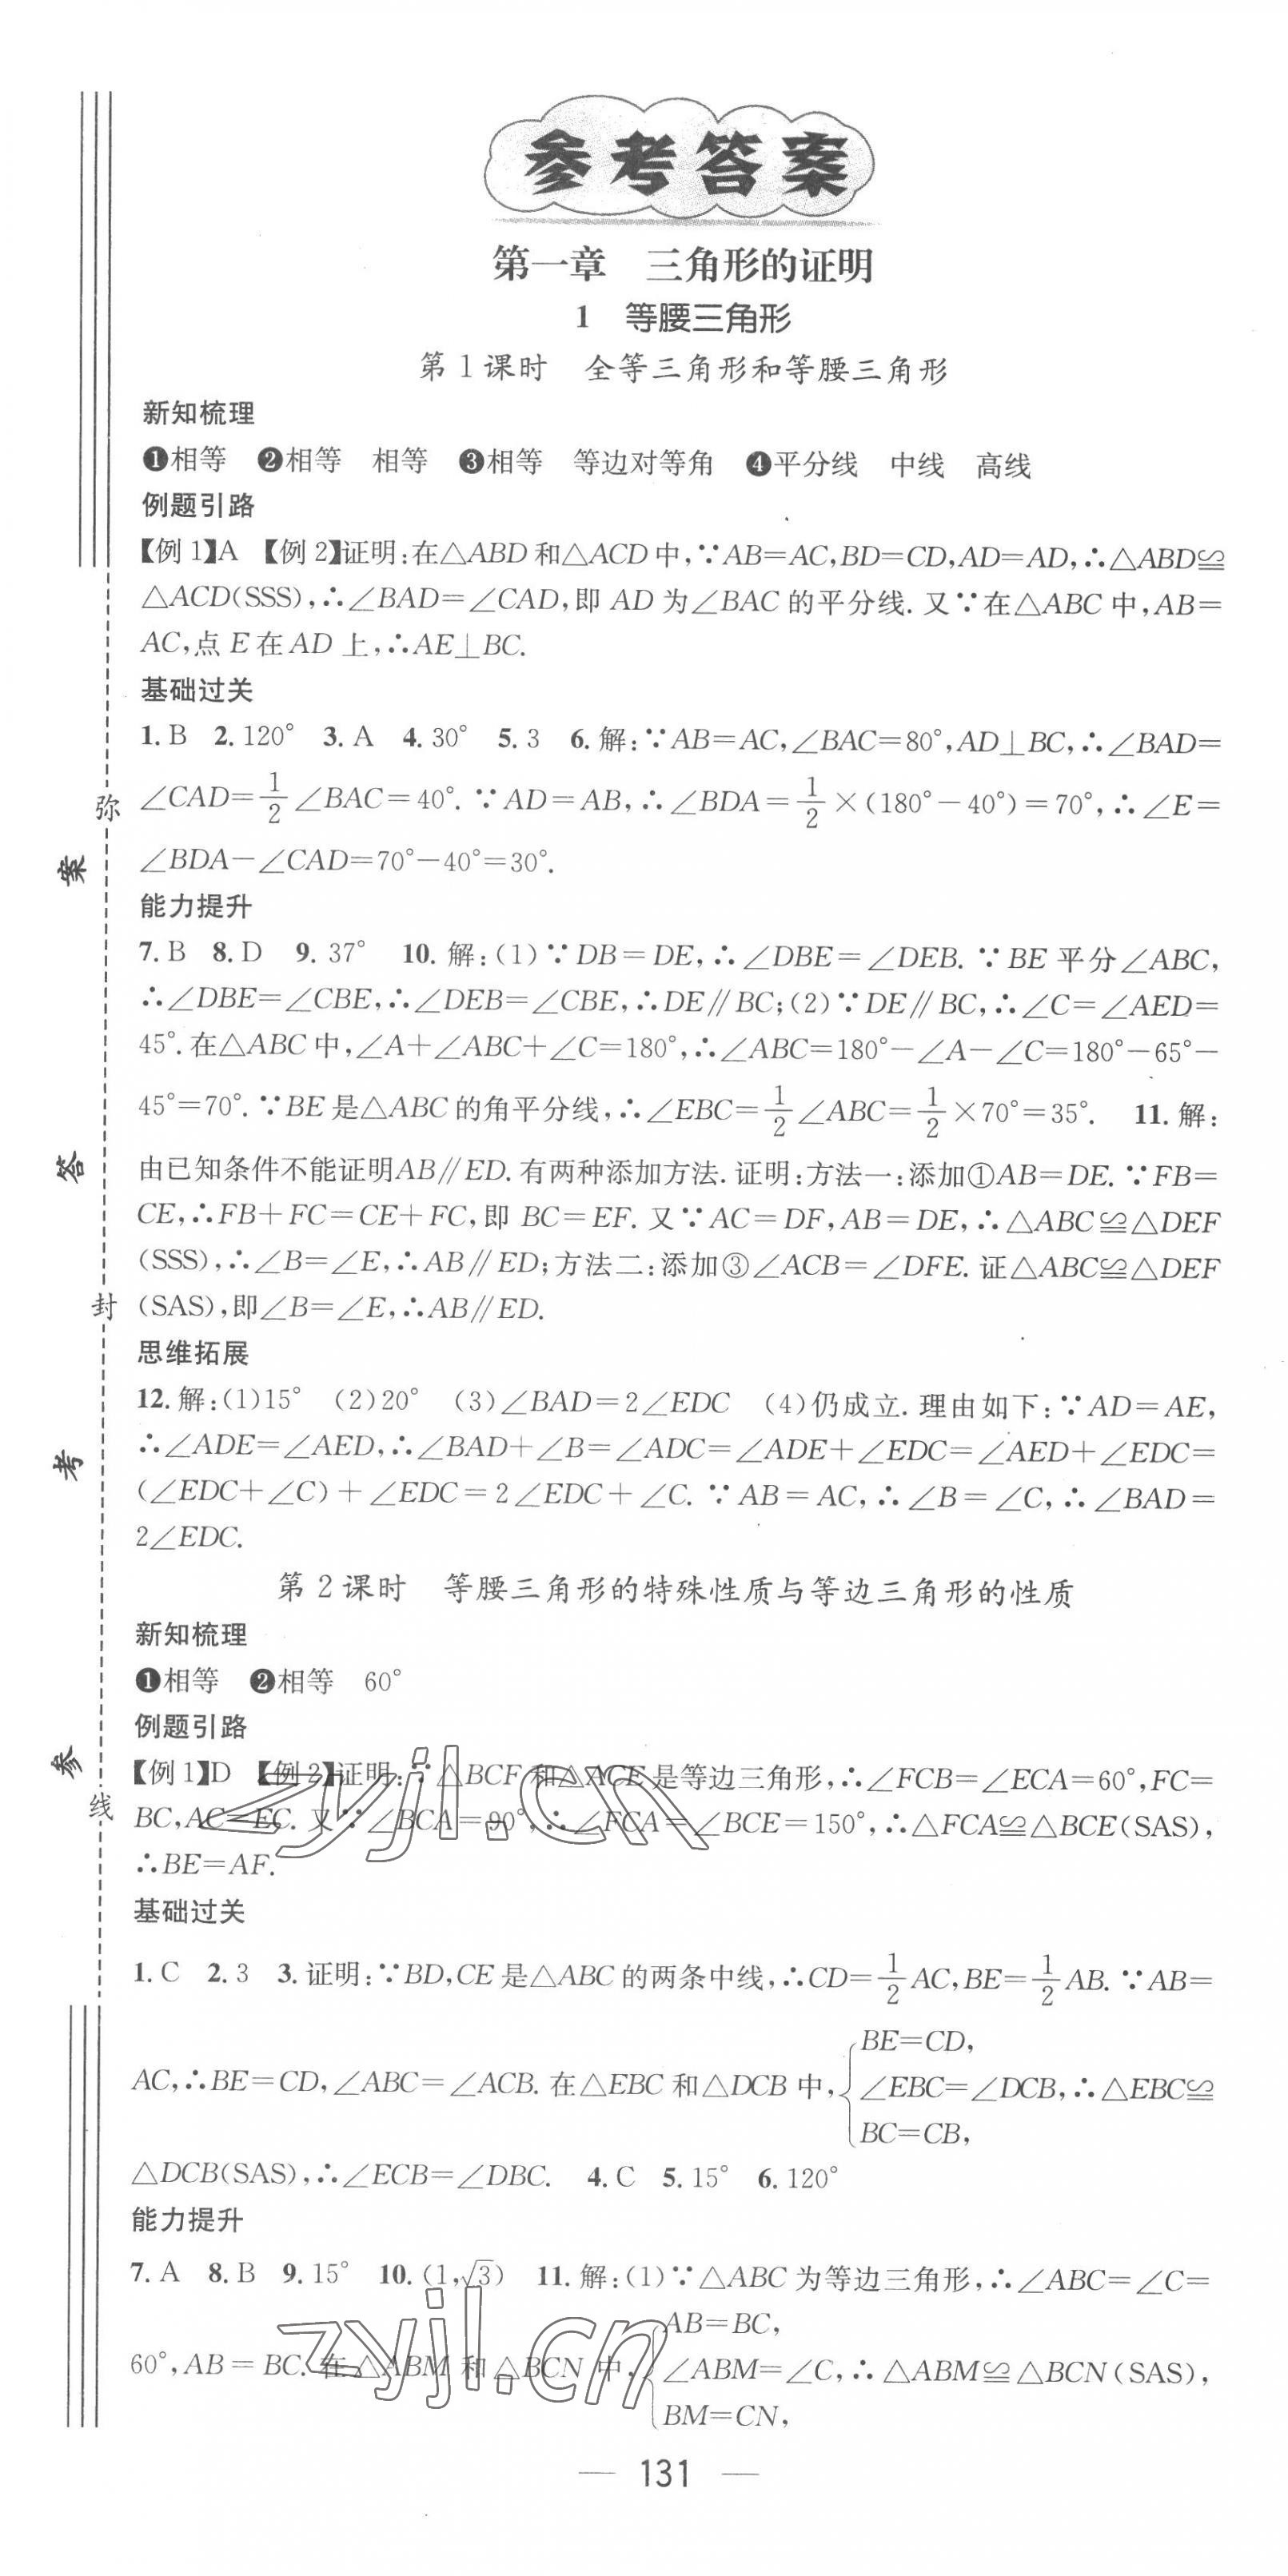 参考答案
第一章 三角形的证明
1 等腰三角形
第1课时 全等三角形和等腰三角形
新知梳理
❶相等 ❷相等 相等 ❸相等 等边对等角 ❹平分线 中线 高线
例题引路
【例1】A 【例2】证明:在△ABD和△ACD中,∵AB=AC,BD=CD,AD=AD,∴△ABD≌
△ACD(SSS),∴∠BAD=∠CAD,即AD为∠BAC的平分线.又∵在△ABC中,AB=
AC,点E在AD上,∴AE⊥BC.
基础过关
1.B 2.120° 3.A 4.30° 5.3 6.解:∵AB=AC,∠BAC=80°,AD⊥BC,∴∠BAD=
∠CAD=1/2∠BAC=40°.∵AD=AB,∴∠BDA=1/2×(180°-40°)=70°,∴∠E=
∠BDA-∠CAD=70°-40°=30°.
能力提升
7.B 8.D 9.37° 10.解:(1)∵DB=DE,∴∠DBE=∠DEB.∵BE平分∠ABC,
∴∠DBE=∠CBE,∴∠DEB=∠CBE,∴DE∥BC;(2)∵DE∥BC,∴∠C=∠AED=
45°.在△ABC中,∠A+∠ABC+∠C=180°,∴∠ABC=180°-∠A-∠C=180°-65°-
45°=70°.∵BE是△ABC的角平分线,∴∠EBC=1/2∠ABC=1/2×70°=35°. 11.解:
由已知条件不能证明AB∥ED.有两种添加方法.证明:方法一:添加①AB=DE.∵FB=
CE,∴FB+FC=CE+FC,即BC=EF.又∵AC=DF,AB=DE,∴△ABC≌△DEF
(SSS),∴∠B=∠E,∴AB∥ED;方法二:添加③∠ACB=∠DFE.证△ABC≌△DEF
(SAS),即∠B=∠E,∴AB∥ED.
思维拓展
12.解:(1)15° (2)20° (3)∠BAD=2∠EDC (4)仍成立.理由如下:∵AD=AE,
∴∠ADE=∠AED,∴∠BAD+∠B=∠ADC=∠ADE+∠EDC=∠AED+∠EDC=
(∠EDC+∠C)+∠EDC=2∠EDC+∠C.∵AB=AC,∴∠B=∠C,∴∠BAD=
2∠EDC.
第2课时 等腰三角形的特殊性质与等边三角形的性质
新知梳理
❶相等 ❷相等 60°
例题引路
【例1】D 【例2】证明:∵△BCF和△ACE是等边三角形,∴∠FCB=∠ECA=60°,FC=
BC,AC=EC.又∵∠BCA=90°,∴∠FCA=∠BCE=150°,∴△FCA≌△BCE(SAS),
∴BE=AF.
基础过关
1.C 2.3 3.证明:∵BD,CE是△ABC的两条中线,∴CD=1/2AC,BE=1/2AB.∵AB=
AC,∴BE=CD,∠ABC=∠ACB.在△EBC和△DCB中,{BE=CD,
∠EBC=∠DCB,∴△EBC≌
BC=CB,
△DCB(SAS),∴∠ECB=∠DBC. 4.C 5.15° 6.120°
能力提升
7.A 8.B 9.15° 10.(1,√3) 11.解:(1)∵△ABC为等边三角形,∴∠ABC=∠C=
60°,AB=BC.在△ABM和△BCN中,{AB=BC,
∠ABM=∠C,∴△ABM≌△BCN(SAS),
BM=CN,
— 131 —
弥
封
线
案
答
考
参
zyjl.cn
zyjl.cn